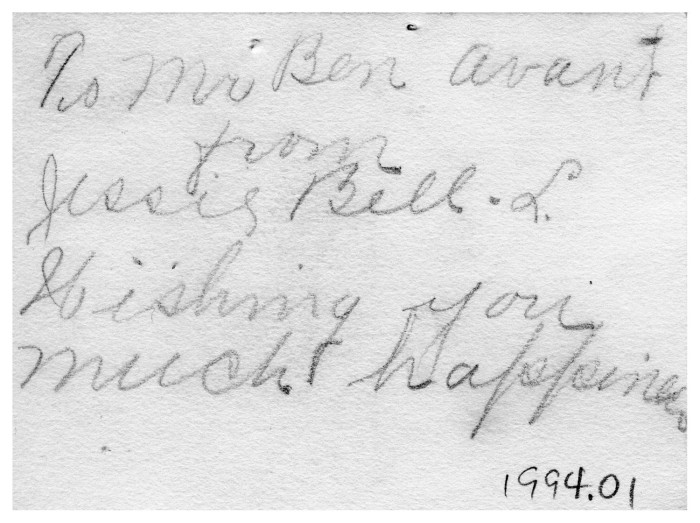 To Mr Ben avant
from
Jessie Bell. L.
Wishing you
much happiness
1994.01